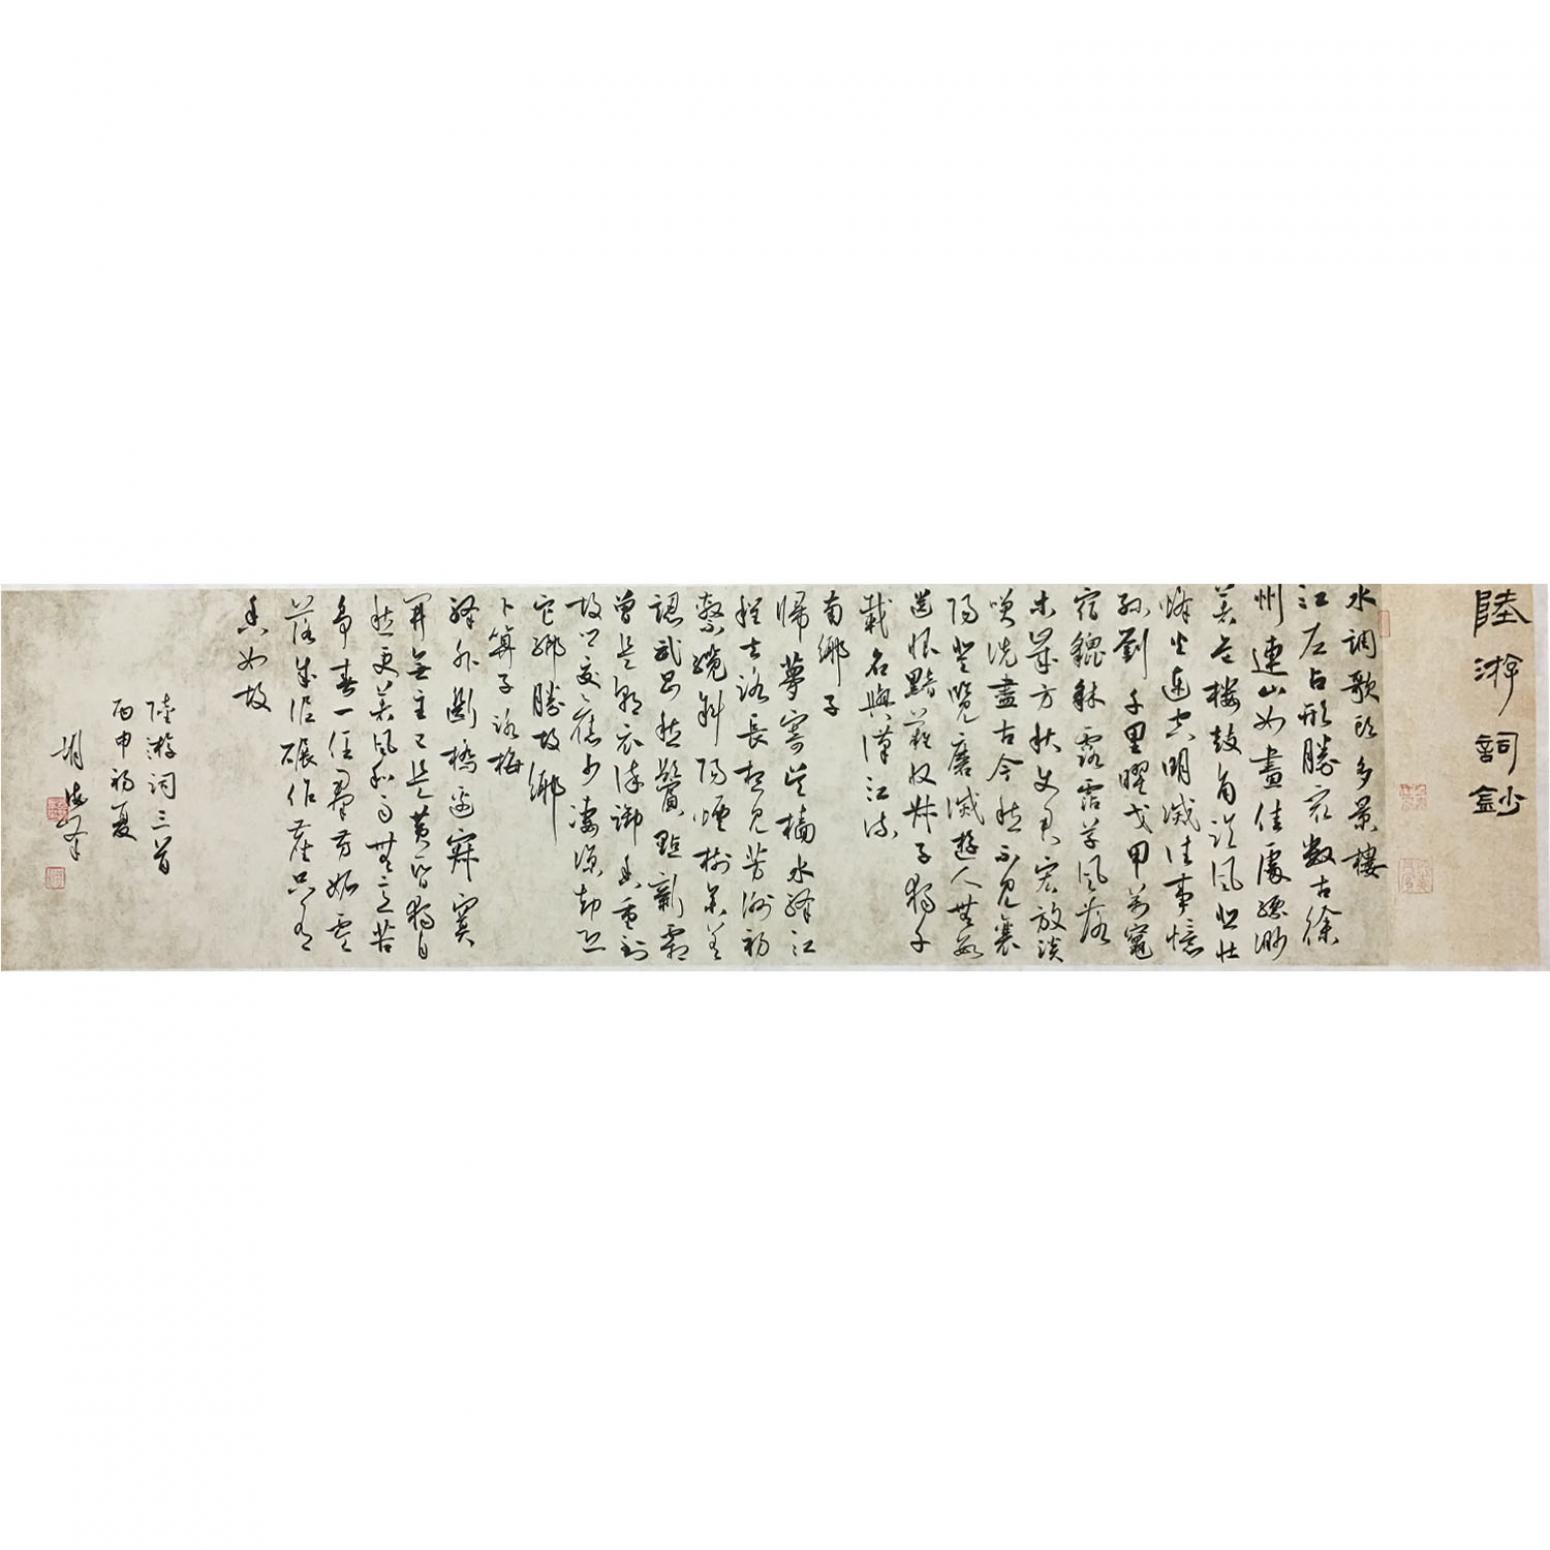 陸游詞鈔
水調歌頭多景樓
江左占形勝最數古徐
州連山如畫佳處縹渺
著危樓鼓角臨風悲壯
烽火連空明滅往事憶
孫劉千里曜戈甲萬竈
宿貔貅露霑草風落
木歲方秋使君宏放談
笑洗盡古今愁不見襄
陽登覽磨滅遊人無數
遺恨黯難收叔子獨千
載名與漢江流
南鄉子
歸夢寄吳檣水驛江
程去路長想見芳洲初
繫纜斜陽煙樹參差
認武昌愁鬢點新霜
曾是朝衣染御香重到
故鄉交舊少淒涼却恐
它鄉勝故鄉
卜算子詠梅
驛外斷橋邊寂寞
開無主已是黃昏獨自
愁更著風和雨無意苦
爭春一任羣芳妒零
落成泥碾作塵只有
香如故
陸游詞三首
丙申初夏
胡海峯